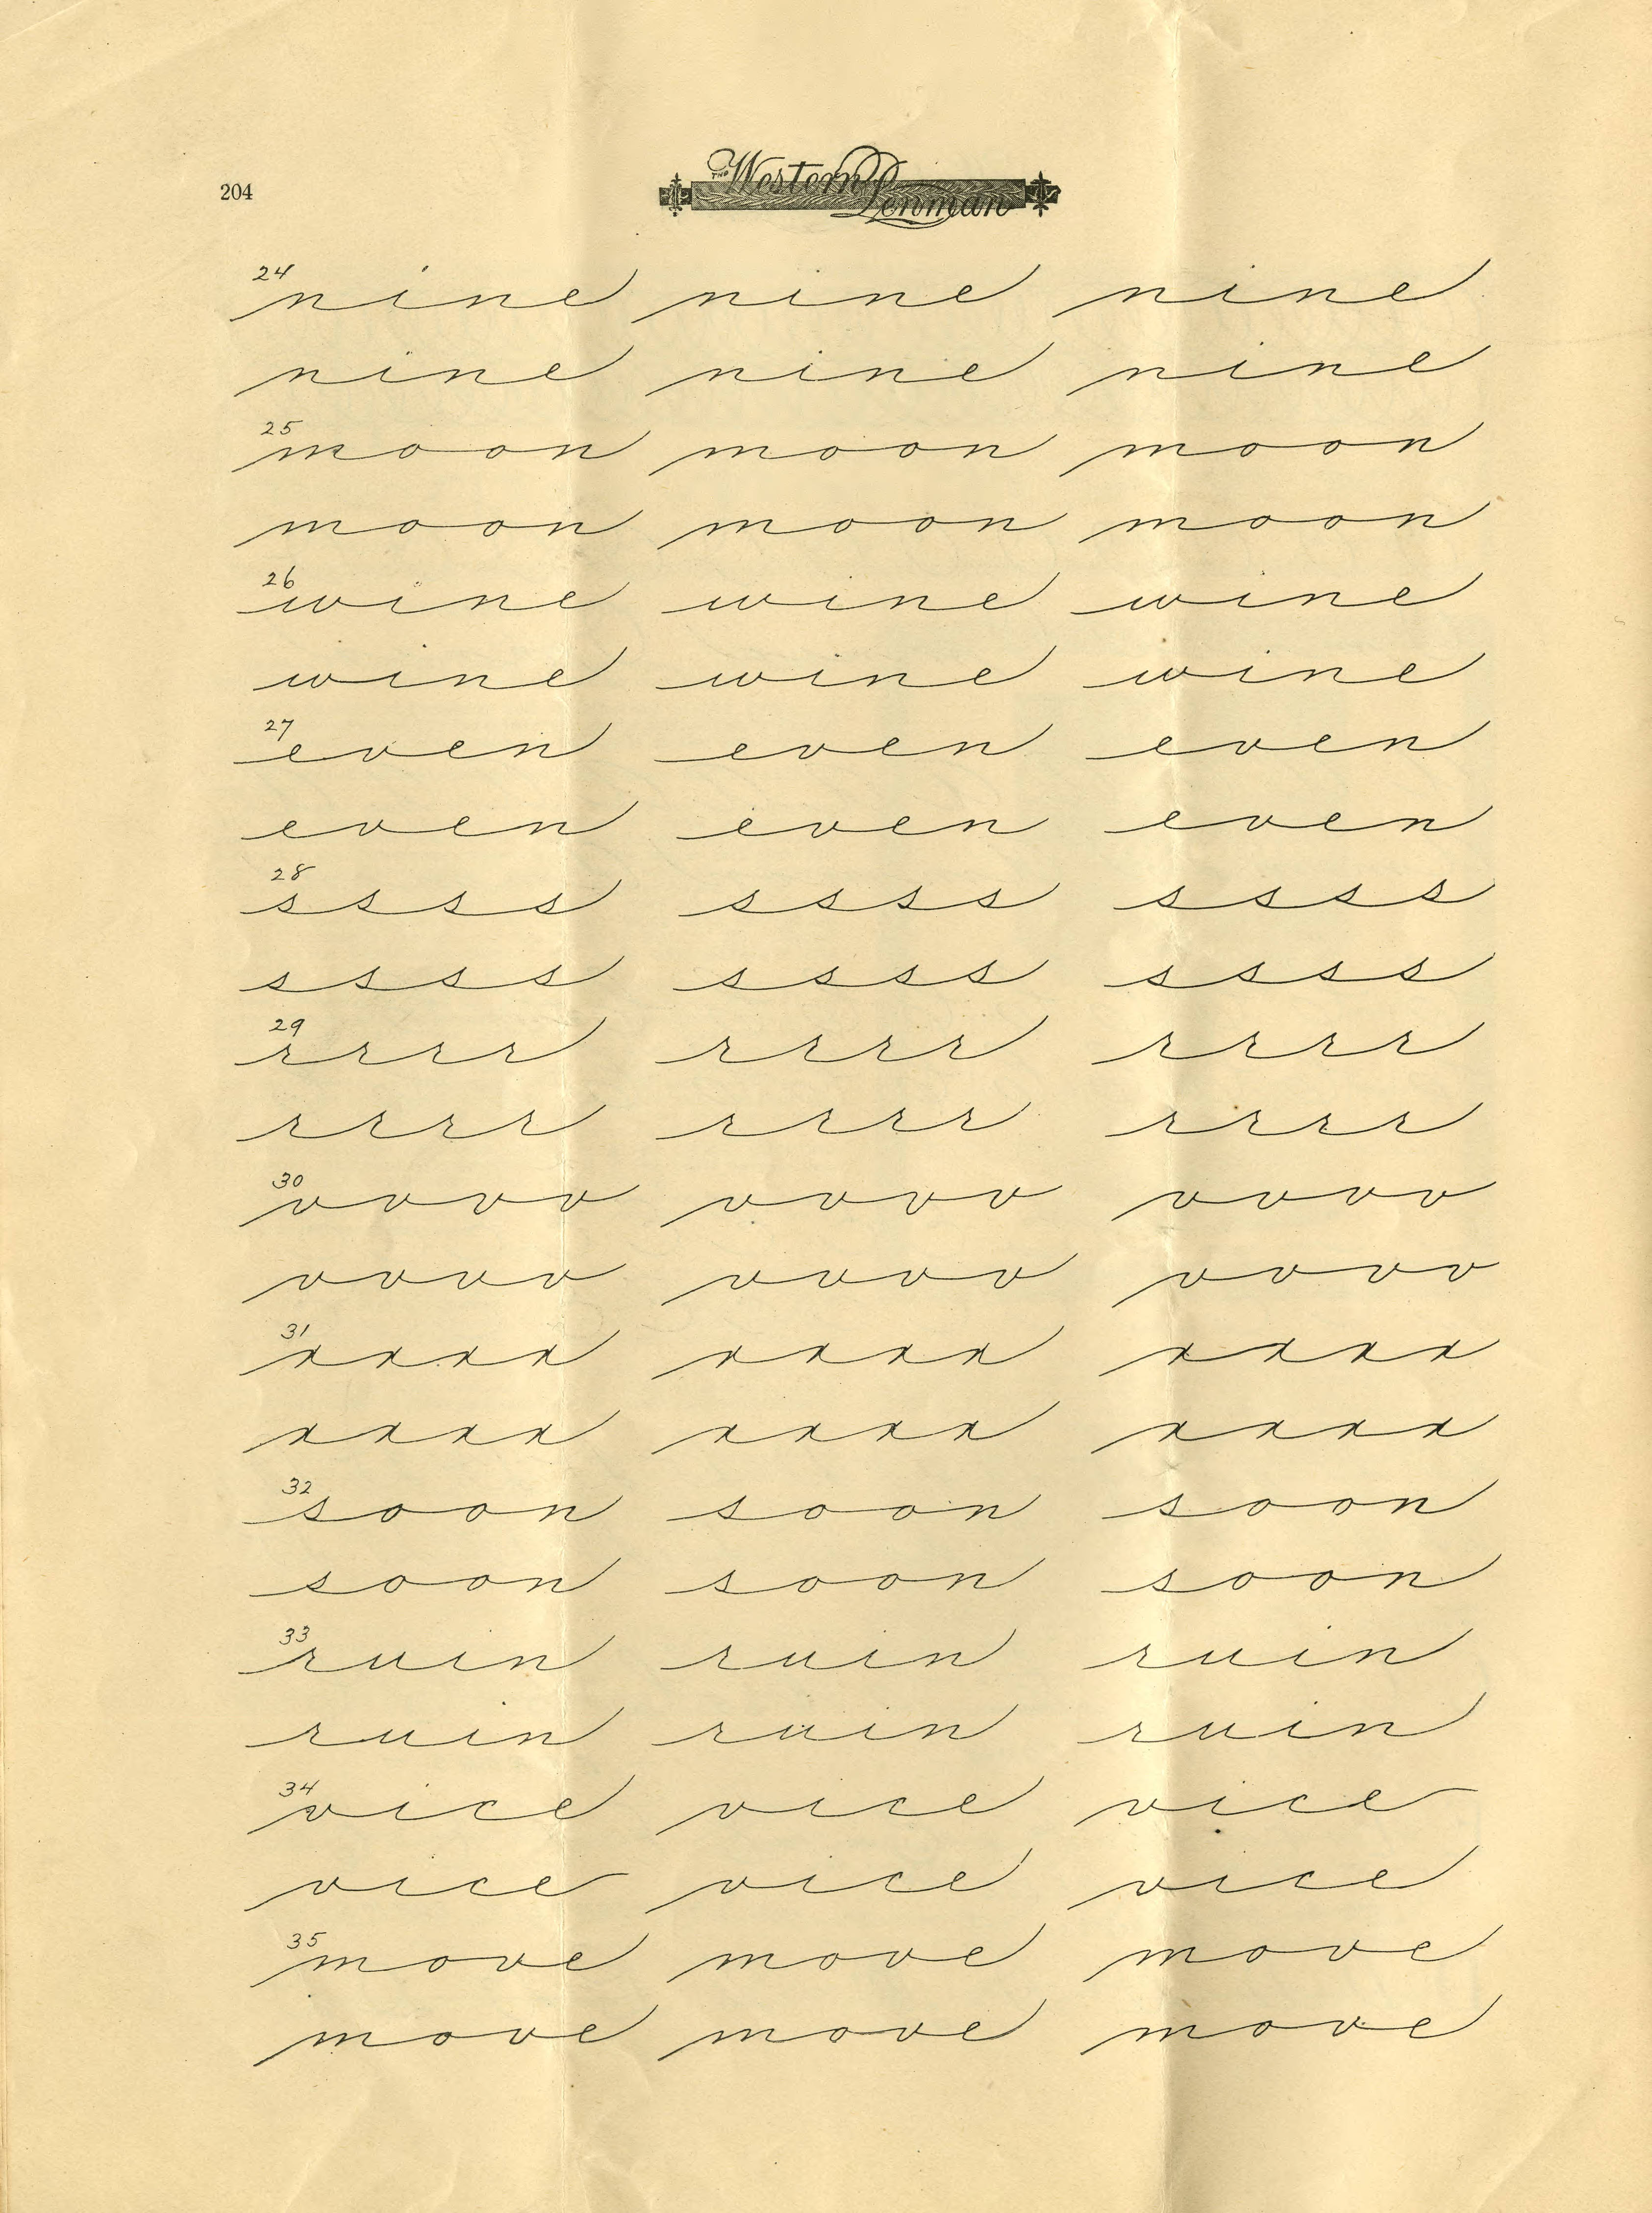 204
The Western Penman
24 nine nine nine
nine nine nine
25 moon moon moon
moon moon moon
26 wine wine wine
wine wine wine
27 even even even
even even even
28 ssss ssss ssss
ssss ssss ssss
29 rrrr rrrr rrrr
rrrr rrrr rrrr
30 vvvv vvvv vvvv
vvvv vvvv vvvv
31 xxxx xxxx xxxx
xxxx xxxx xxxx
32 soon soon soon
soon soon soon
33 ruin ruin ruin
ruin ruin ruin
34 vice vice vice
vice vice vice
35 move move move
move move move